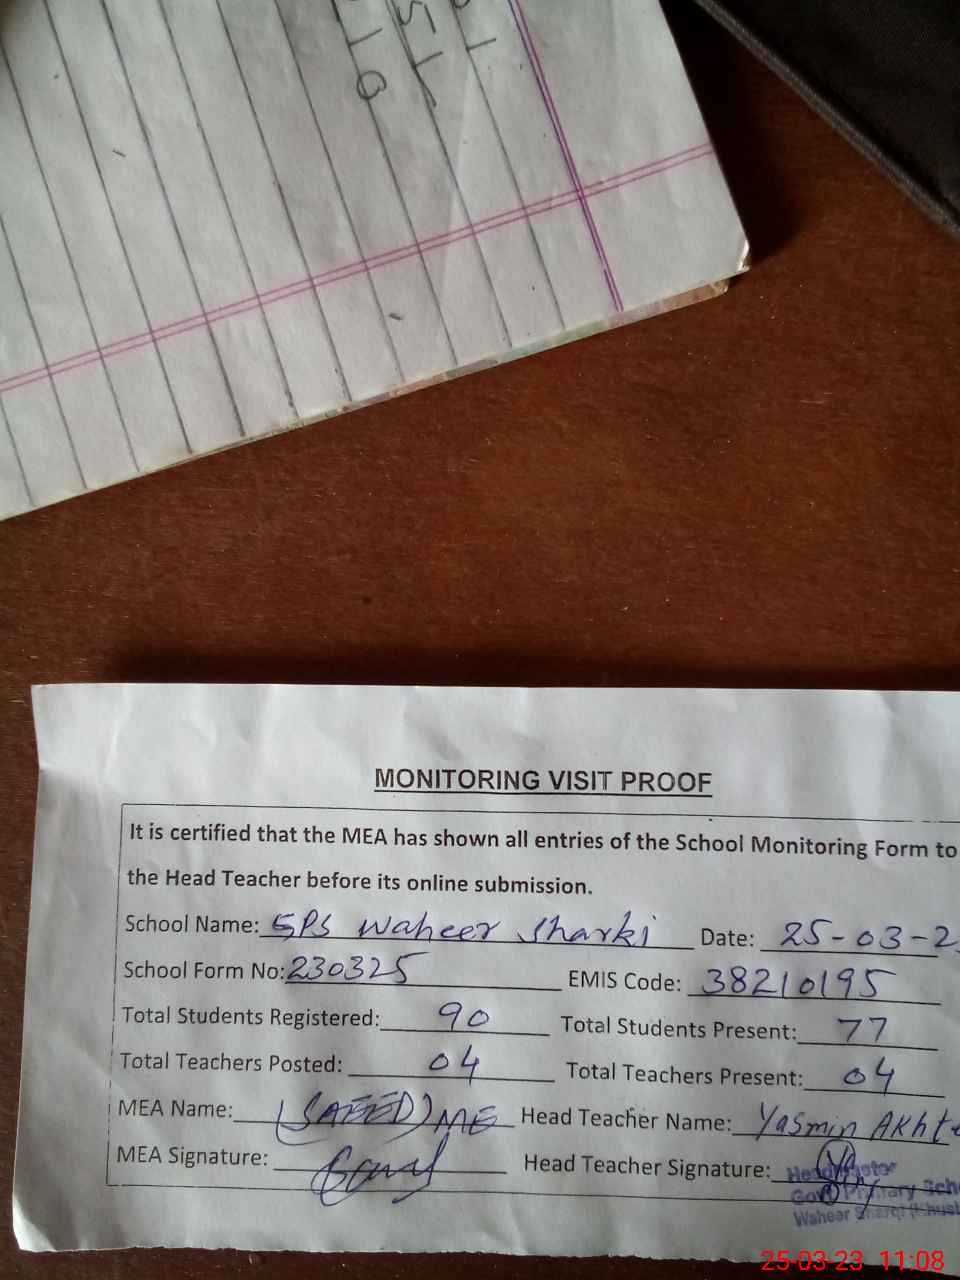 MONITORING VISIT PROOF
It is certified that the MEA has shown all entries of the School Monitoring Form to
the Head Teacher before its online submission.
School Name: GPS Waheer Sharki Date: 25-03-2
School Form No: 230325 EMIS Code: 38210195
Total Students Registered: 90 Total Students Present: 77
Total Teachers Posted: 04 Total Teachers Present: 04
MEA Name: (SAEED) ME Head Teacher Name: Yasmin Akht
MEA Signature: Head Teacher Signature:
Headmaster
Govt Primary Sch
Wahear Sharqi (Khush
25-03-23 11:08